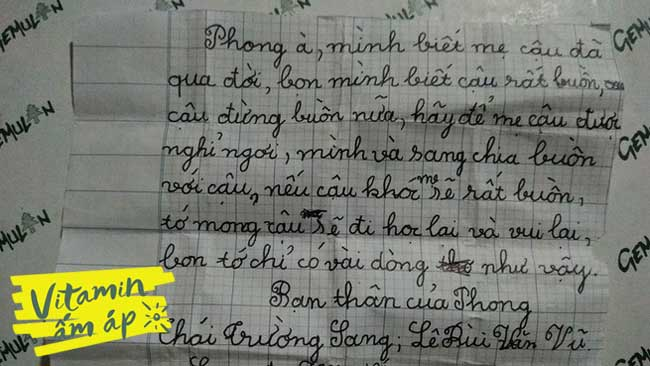 Phong à, mình biết mẹ cậu đã
qua đời, bọn mình biết cậu rất buồn,
cậu đừng buồn nữa, hãy để mẹ cậu được
nghỉ ngơi, mình và sang chia buồn
với cậu, nếu cậu khóc mẹ sẽ rất buồn,
tớ mong cậu sẽ đi học lại và vui lại,
bọn tớ chỉ có vài dòng như vậy.
Bạn thân của Phong
Thái Trường Sang; Lê Bùi Văn Vũ
Vitamin
ấm áp
GEMULAN
GEMULAN
GEMULAN
GEMULAN